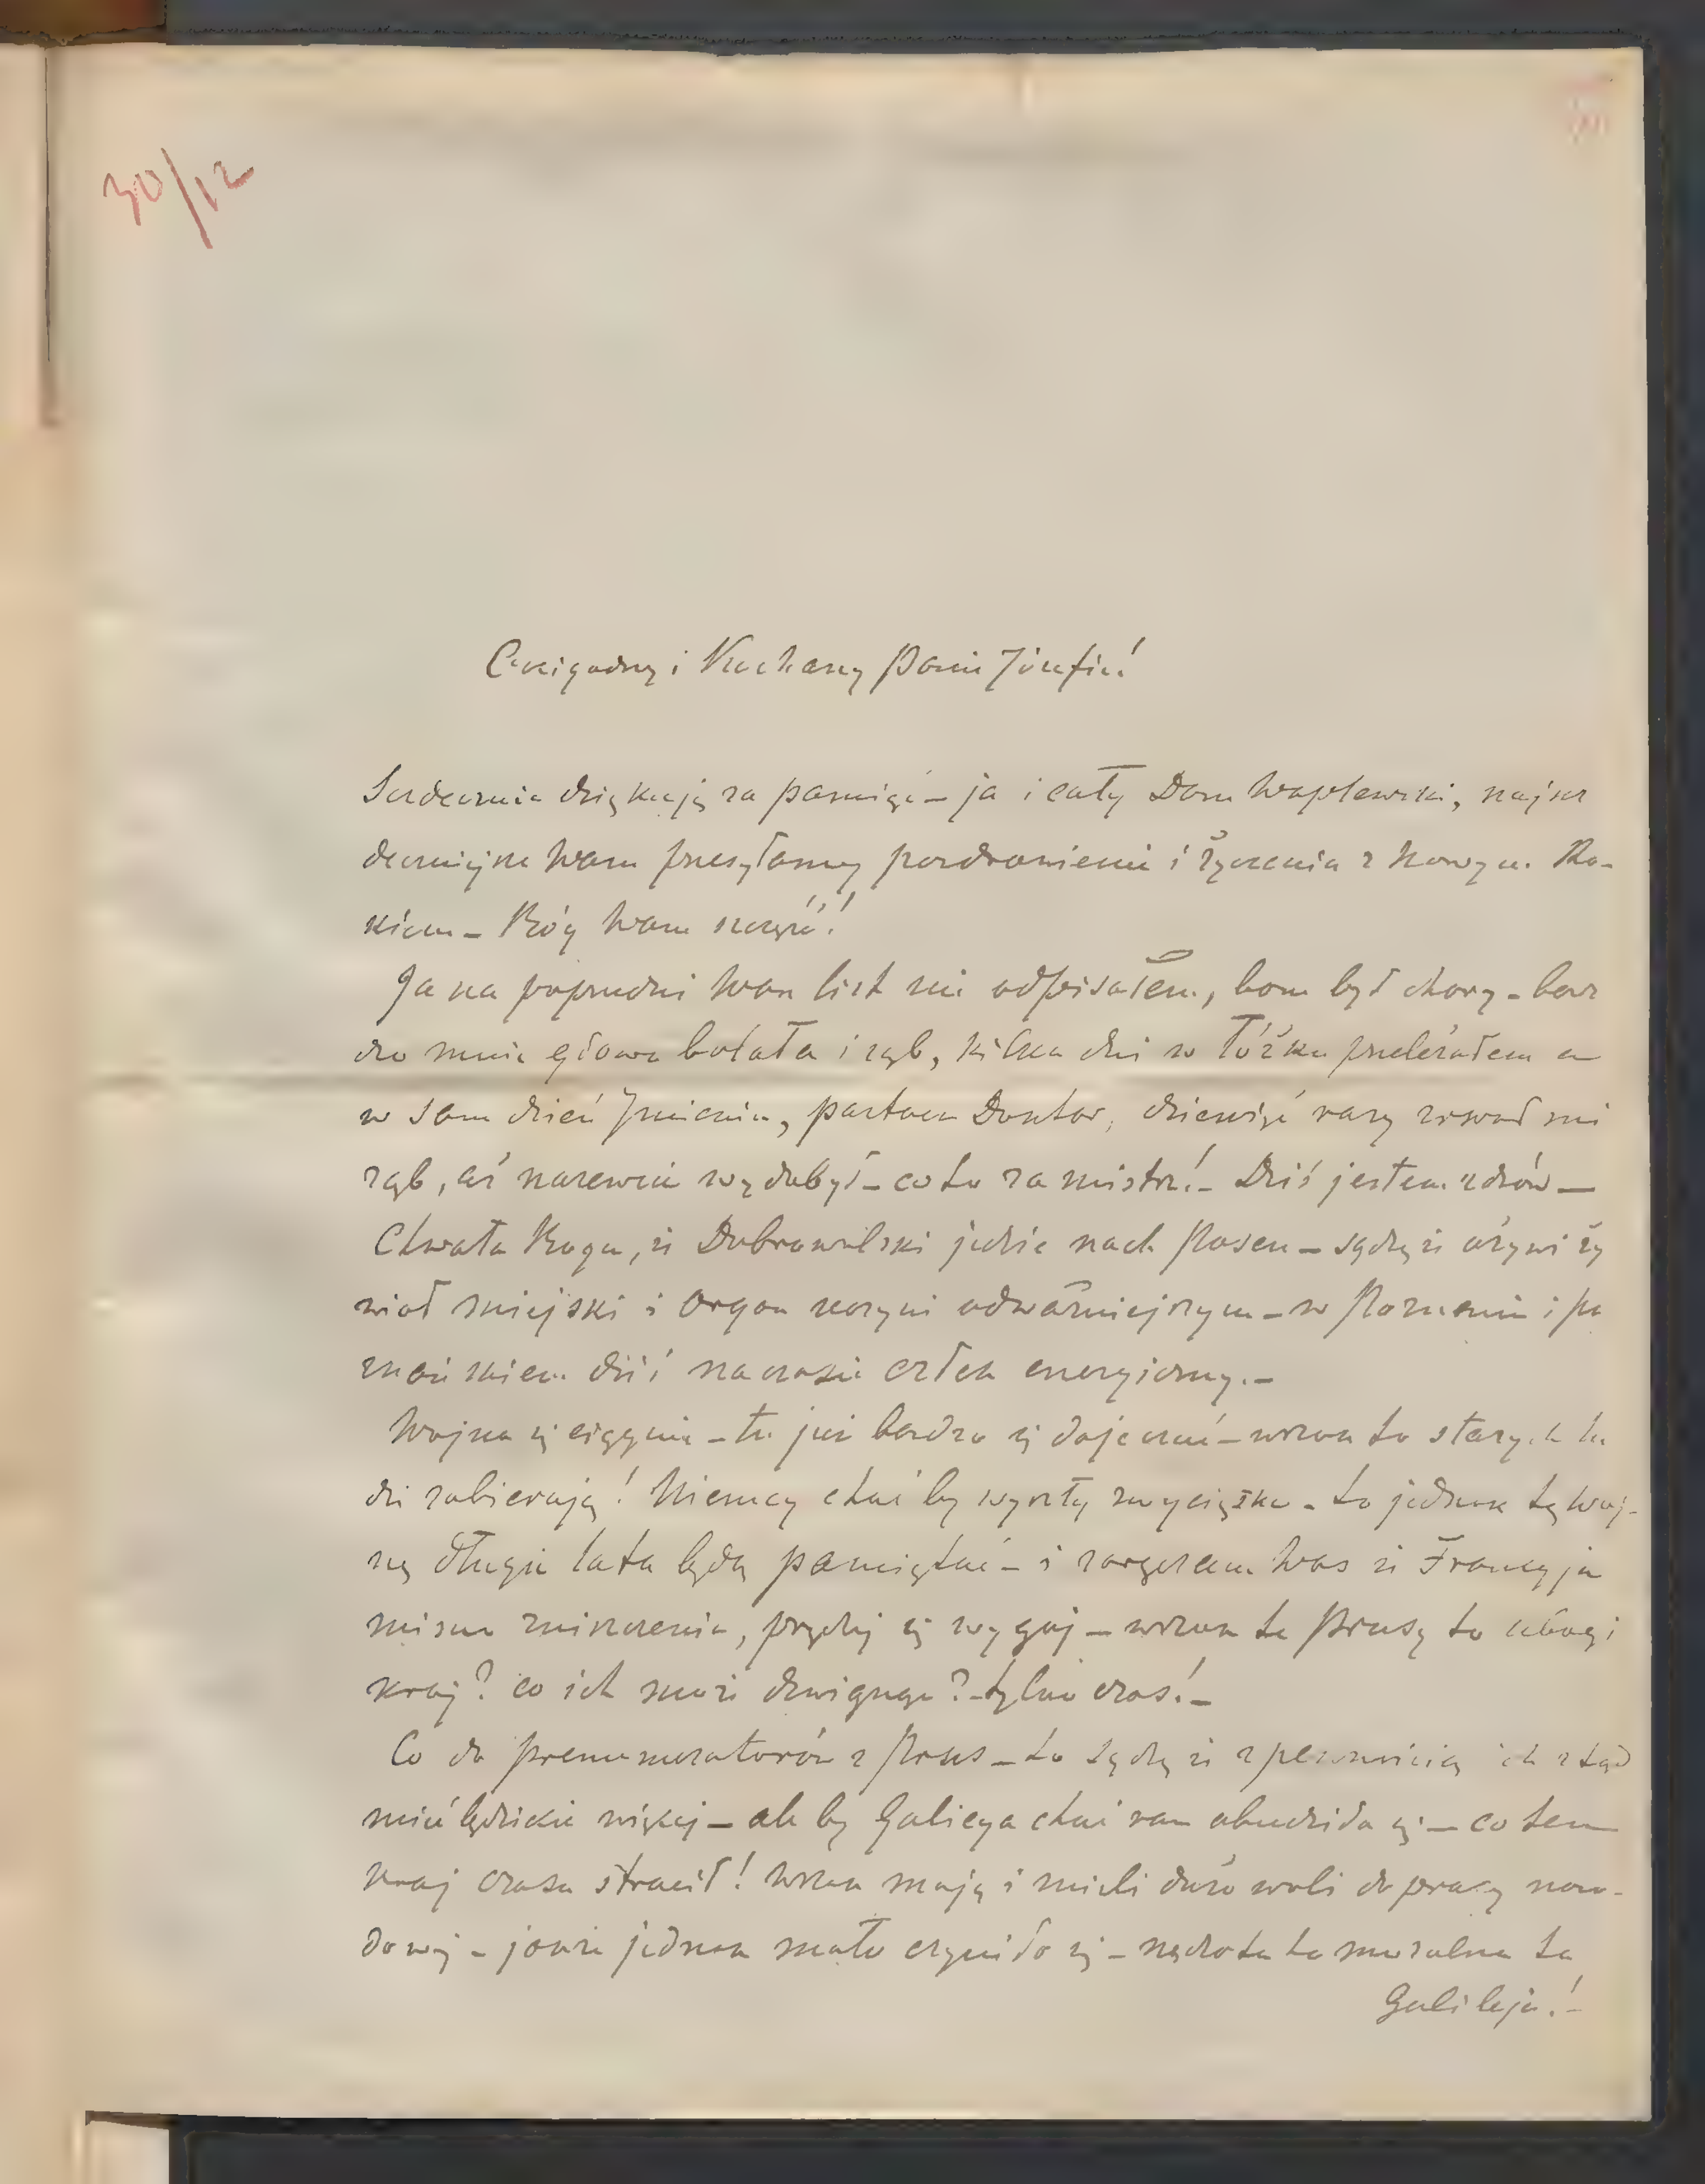 30/12
Czcigodny i Kochany Panie Józefie!
Serdecznie dziękuję za pamięć – ja i cały Dom Waplewski, najser
deczniejsze Wam przesyłamy pozdrowienia i życzenia z Nowym Ro-
kiem – Bóg Wam szczęść!
Ja na poprzedni Wasz list nie odpisałem, bom był chory – bar
dzo mnie głowa bolała i ząb, kilka dni w łóżku przeleżałem a
w sam dzień Imienin, partacz Doktor, dziewięć razy zrywał mi
ząb, aż nareszcie wydobył – co to za mistrz! – Dziś jestem zdrów –
Chwała Bogu, że Dobrowolski jedzie nach Posen – sądzę że ożywi ży
wioł miejski i Organ uczyni odważniejszym – w Poznaniu i po
znańskiem dziś na czasie człek energiczny. –
Wojna się ciągnie – tu już bardzo się daje czuć – wszak to starych lu
dzi zabierają! Niemcy choć by wyszły zwycięzko – to jednak tę woj-
nę długie lata będą pamiętać – i zaręczam Was że Francyja
mimo zniszczenia, prędzej się wygoj – wszak te Prusy to ubogi
kraj? co ich może dzwignąć? – tylko czas! –
Co do prenumeratorów z Prus – to sądzę że z pewnością ich ztąd
mieć będziecie więcej – ale by Galicya choć raz obudziła się – co ten
kraj czasu stracił! Wszak mają i mieli dużo woli do pracy naro-
dowej – jakże jednak mało czyniło się – nędzota to moralna ta
Galileja! –